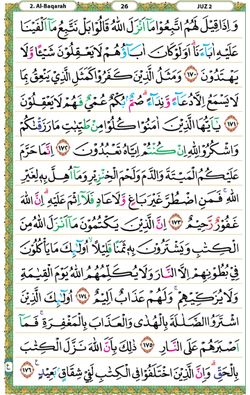 2. Al-Baqarah 26 JUZ 2
وَإِذَا قِيلَ لَهُمُ اتَّبِعُوا مَا أَنْزَلَ اللَّهُ قَالُوا بَلْ نَتَّبِعُ مَا أَلْفَيْنَا
عَلَيْهِ آبَاءَنَا أَوَلَوْ كَانَ آبَاؤُهُمْ لَا يَعْقِلُونَ شَيْئًا وَلَا
يَهْتَدُونَ ١٧٠ وَمَثَلُ الَّذِينَ كَفَرُوا كَمَثَلِ الَّذِي يَنْعِقُ بِمَا
لَا يَسْمَعُ إِلَّا دُعَاءً وَنِدَاءً صُمٌّ بُكْمٌ عُمْيٌ فَهُمْ لَا يَعْقِلُونَ
١٧١ يَا أَيُّهَا الَّذِينَ آمَنُوا كُلُوا مِنْ طَيِّبَاتِ مَا رَزَقْنَاكُمْ
وَاشْكُرُوا لِلَّهِ إِنْ كُنْتُمْ إِيَّاهُ تَعْبُدُونَ ١٧٢ إِنَّمَا حَرَّمَ
عَلَيْكُمُ الْمَيْتَةَ وَالدَّمَ وَلَحْمَ الْخِنْزِيرِ وَمَا أُهِلَّ بِهِ لِغَيْرِ
اللَّهِ فَمَنِ اضْطُرَّ غَيْرَ بَاغٍ وَلَا عَادٍ فَلَا إِثْمَ عَلَيْهِ إِنَّ اللَّهَ
غَفُورٌ رَحِيمٌ ١٧٣ إِنَّ الَّذِينَ يَكْتُمُونَ مَا أَنْزَلَ اللَّهُ مِنَ
الْكِتَابِ وَيَشْتَرُونَ بِهِ ثَمَنًا قَلِيلًا أُولَٰئِكَ مَا يَأْكُلُونَ
فِي بُطُونِهِمْ إِلَّا النَّارَ وَلَا يُكَلِّمُهُمُ اللَّهُ يَوْمَ الْقِيَامَةِ
وَلَا يُزَكِّيهِمْ وَلَهُمْ عَذَابٌ أَلِيمٌ ١٧٤ أُولَٰئِكَ الَّذِينَ
اشْتَرَوُا الضَّلَالَةَ بِالْهُدَىٰ وَالْعَذَابَ بِالْمَغْفِرَةِ فَمَا
أَصْبَرَهُمْ عَلَى النَّارِ ١٧٥ ذَٰلِكَ بِأَنَّ اللَّهَ نَزَّلَ الْكِتَابَ
بِالْحَقِّ وَإِنَّ الَّذِينَ اخْتَلَفُوا فِي الْكِتَابِ لَفِي شِقَاقٍ بَعِيدٍ ١٧٦